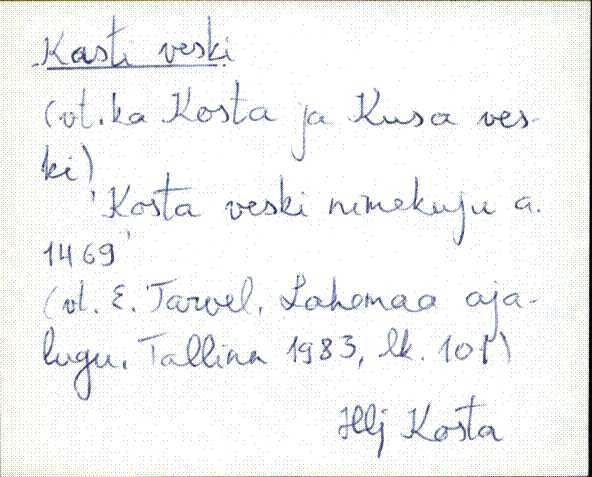 Kasti veski
(vt. ka Kosta ja Kusa ves-
ki)
'Kosta veski nimekuju a.
1469'
(vt. E. Tarvel, Lahemaa aja-
lugu. Tallinn 1983, lk. 101)
Hlj Kosta